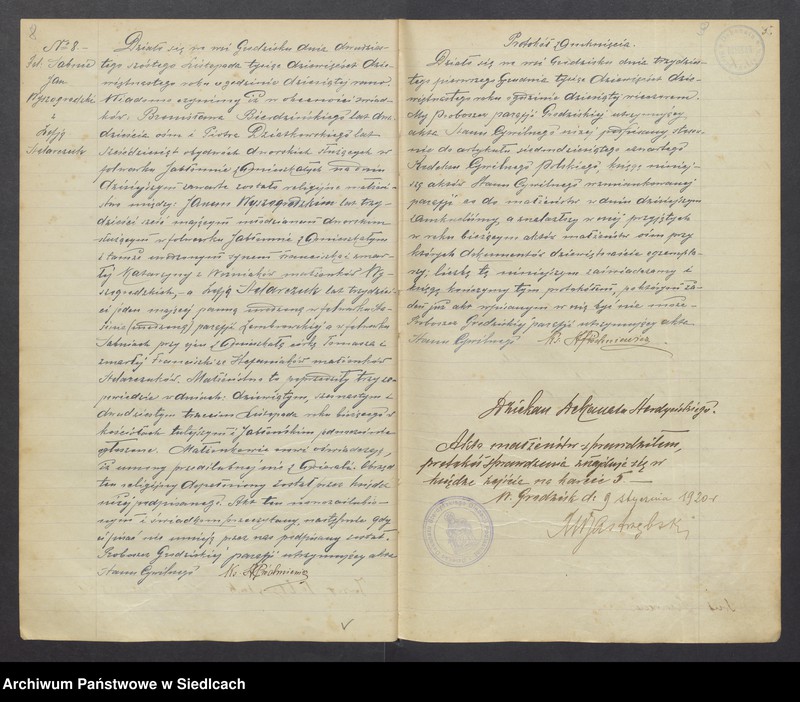 2
№ 8.
Fol. Sabnie
Jan
Wyszogrodzki
z
Zofją
Stelarczuk
Działo się we wsi Grodzisku dnia dwudzies-
tego szóstego Listopada tysiąc dziewięćset dzie-
więtnastego roku o godzinie dziesiątej rano.
Wiadomo czynimy iż w obecności świad-
ków, Bronisława Biedzińskiego lat dwa-
dzieścia ośm i Piotra Dziatkowskiego lat
sześćdziesiąt obydwóch dworskich służących w
folwarku Jabłonnie zamieszkałych na dniu
dzisiejszym zawarte zostało religijne małżeń-
stwo między: Janem Wyszogrodzkim lat trzy-
dzieści sześć mającym młodzianem dworskim
służącym w folwarku Jabłonnie zamieszkałym
i tamże urodzonym synem Franciszka i zmar-
łej Katarzyny z małżonków Wy-
szogrodzkich, a Zofją Stelarczuk lat trzydzie-
ści jeden mającą panną urodzoną w folwarku
(urodzoną) parafji Zembrowskiej a w folwarku
Sabniach przy ojcu zamieszkałą córką Tomasza i
zmarłej Franciszki ze Stefaniaków małżonków
Stelarczuków. Małżeństwo to poprzedziły trzy za-
powiedzie w dniach: dziewiątym, szesnastym i
dwudziestym trzecim Listopada roku bieżącego w
kościołach tutejszym i Jabłońskim jednocześnie
głoszone. Małżonkowie nowi oświadczają,
iż umowy przedślubnej nie zawierali. Obrzęd
ten religijny dopełniony został przez księdza
niżej podpisanego. Akt ten nowozaślubio-
nym i świadkom przeczytany, następnie gdy
ci pisać nie umieją przez nas podpisany został.
Proboszcz Grodziskiej parafji utrzymujący akta
Stanu Cywilnego Ks.
5.
Protokół Zamknięcia.
Działo się we wsi Grodzisku dnia trzydzies-
tego pierwszego Grudnia tysiąc dziewięćset dzie-
więtnastego roku o godzinie dziesiątej wieczorem.
My Proboszcz parafji Grodziskiej utrzymujący
akta Stanu Cywilnego niżej podpisany stosow-
nie do artykułu siedemdziesiątego czwartego
Kodeksu Cywilnego Polskiego, księgę niniej-
szą aktów Stanu Cywilnego wzmiankowanej
parafji co do małżeństw w dniu dzisiejszym
zamknęliśmy, a znalazłszy w niej przyjętych
w roku bieżącym aktów małżeństw ośm przy
których dokumentów dziewiętnaście egzempla-
rzy; liczbę tę niniejszym zaświadczamy i
księgę kończymy tym protokółem, poktórym ża-
den już akt wpisanym w nią być nie może.
Proboszcz Grodziskiej parafji utrzymujący akta
Stanu Cywilnego Ks.
Dziekan Dekanatu
Akta małżeństw sprawdziłem,
protokół sprawdzenia znajduje się w
księdze zejścia na karcie 5 —
W. Grodzisk d. 9 stycznia 1920 r
Archiwum Państwowe w Siedlcach